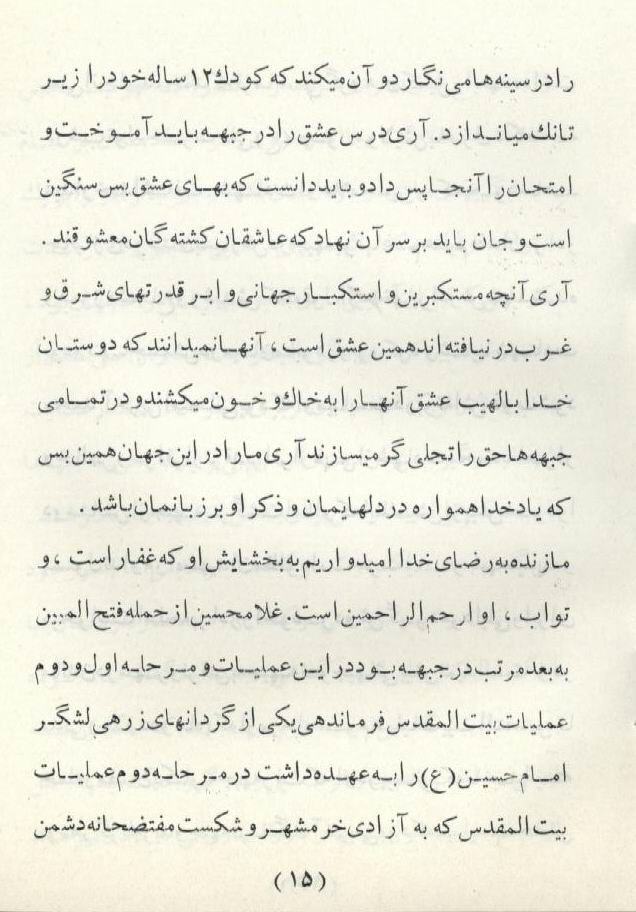 را در سینه ها می نگارد و آن میکند که کودك ۱۲ ساله خود را زیر
تانك میاندازد. آری درس عشق را در جبهه باید آموخت و
امتحان را آنجا پس داد و باید دانست که بهای عشق بس سنگین
است و جان باید بر سر آن نهاد که عاشقان کشته گان معشوقند .
آری آنچه مستکبرین و استکبار جهانی و ابر قدرتهای شرق و
غرب در نیافته اند همین عشق است ، آنها نمیدانند که دوستان
خدا با لهیب عشق آنها را به خاك و خون میکشند و در تمامی
جبهه ها حق را تجلی گر میسازند آری ما را در این جهان همین بس
که یاد خدا همواره در دلهایمان و ذکر او بر زبانمان باشد .
ما زنده به رضای خدا امیدواریم به بخشایش او که غفار است ، و
تواب ، او ارحم الراحمین است. غلامحسین از حمله فتح المبین
به بعد مرتب در جبهه بود در این عملیات و مرحله اول و دوم
عملیات بیت المقدس فرماندهی یکی از گردانهای زرهی لشگر
امام حسین (ع) را به عهده داشت در مرحله دوم عملیات
بیت المقدس که به آزادی خرمشهر و شکست مفتضحانه دشمن
(۱۵)